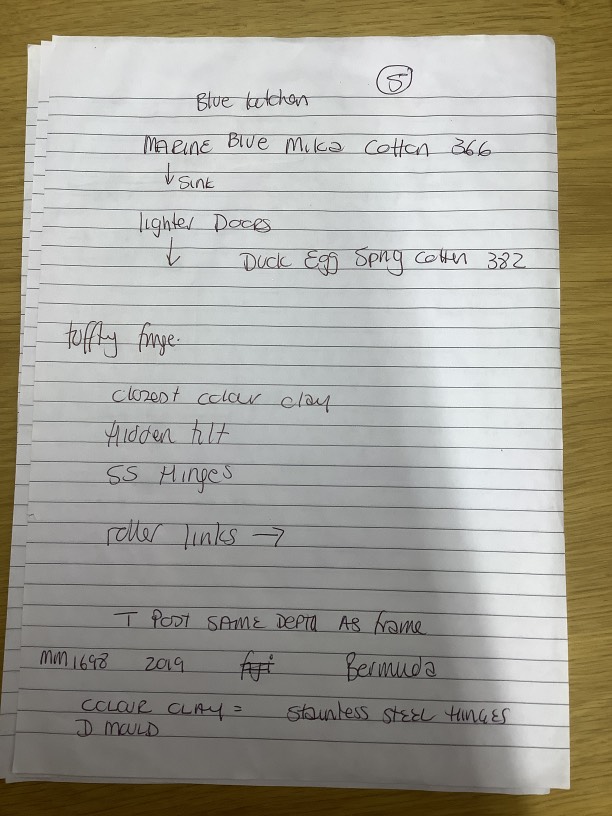 5
Blue kitchen
MARINE Blue Mika Cotton 366
↓ Sink
lighter Doors
↓ Duck Egg Spng Cotton 382
fuffty fringe.
closest colour clay
Hidden tilt
SS Hinges
roller links →
T POST SAME DEPTH AS frame
MM1698 2019 Bermuda
COLOUR CLAY = Stainless STEEL HINGES
D MOULD